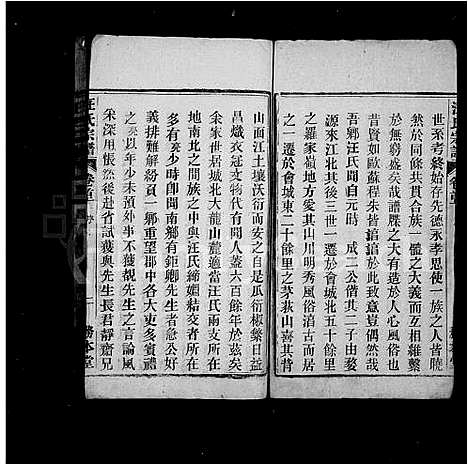 世系考終始存先德永孝思使一族之人皆曉
然於同條共貫合族一體之大義而不自相攜
貳如歐蘇程朱皆諳諳於此致意豈偶然哉
最綿盛矣哉譜牒之大有造於人心風俗也
吾鄉汪氏聞自元時 咸二公偕其二子由婺
源來江北其後三世一遷於會城北五十餘里
之羅家嶺地方愛其山川明秀風俗消古而居
之一遷於會城東二十餘里之茅荻山喜其背
山面江土壤沃衍而安之是瓜衍椒繁日益
昌熾衣冠文物代有聞人蓋六百餘年於茲矣
余家世居城北大龍山麓適當汪氏兩支所居
地南北之間族之中與汪氏締婣結好者所在
多有蔡少時即聞南鄉有鉅卿先生者急公好
義排難解紛頁一鄉重望郡中各大吏多賓禮
之以年少未預外事不獲覩先生之言論風
采深用悵然後赴省試獲與先生長君靜齋兄
汪氏宗譜
卷首 序
一
務本堂